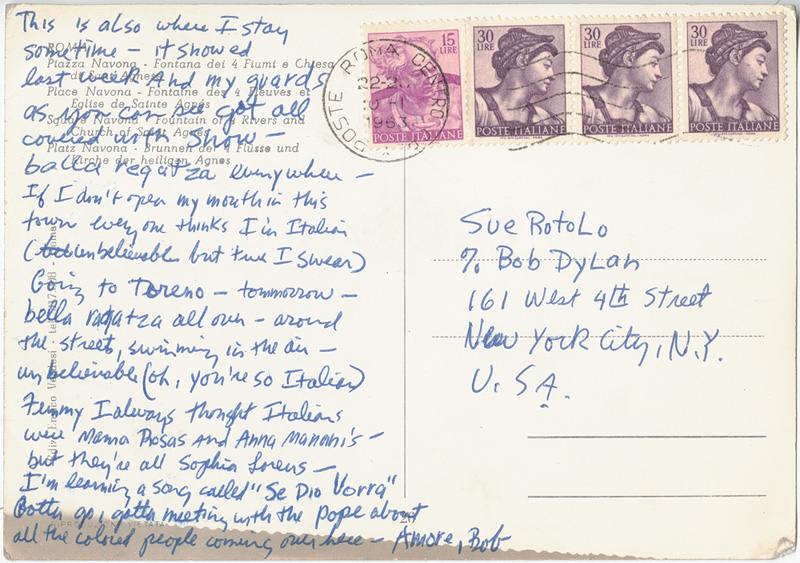 This is also where I stay
sometime – it showed
last week And my guards
as you can see got all
covered with snow –
balla regatza everywhere –
If I don't open my mouth in this
town every one thinks I'm Italian
(unbelievable but true I swear)
Going to Toreno – tommorrow –
bella ragatza all over – around
the streets, swimming in the air –
unbelievable (oh, you're so Italian)
Funny I always thought Italians
were Mama Rosas and Anna Manani's –
but they're all Sophia Lorens –
I'm learning a song called "Se Dio Vorra"
Gotta go, gotta meeting with the pope about
all the colored people coming over here – Amore, Bob
ROMA
Piazza Navona - Fontana dei 4 Fiumi e Chiesa
di Sant'Agnese
Place Navona - Fontaine des 4 Fleuves et
Eglise de Sainte Agnès
Square Navona - Fountain of 4 Rivers and
Church of Saint Agnes
Platz Navona - Brunnen der 4 Flüsse und
Kirche der heiligen Agnes
Enrico Verdesi
26
15
LIRE
POSTE ITALIANE
30
LIRE
POSTE ITALIANE
30
LIRE
POSTE ITALIANE
30
LIRE
POSTE ITALIANE
POSTE ROMA CENTRO
1963
Sue Rotolo
% Bob Dylan
161 West 4th Street
New York City, N.Y.
U.S.A.